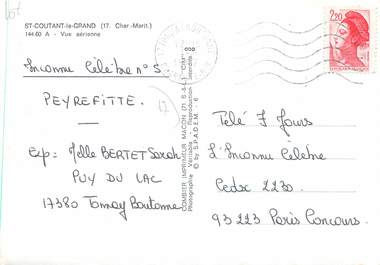 ST-COUTANT-le-GRAND (17. Char.-Marit.)
144-60 A - Vue aérienne
Inconnu Célèbre n° 5:
PEYREFITTE.
Exp: Melle BERTET Sarah
PUY DU LAC
17380 Tonnay Boutonne
COMBIER IMPRIMEUR MACON (71 S.-&-L.) "CIM"
Photographie Véritable - Reproduction interdite
© by S.P.A.D.E.M. - 6
2,20
Télé 7 Jours
L'Inconnu Célèbre
Cedex 2230.
93223 Paris Concours.